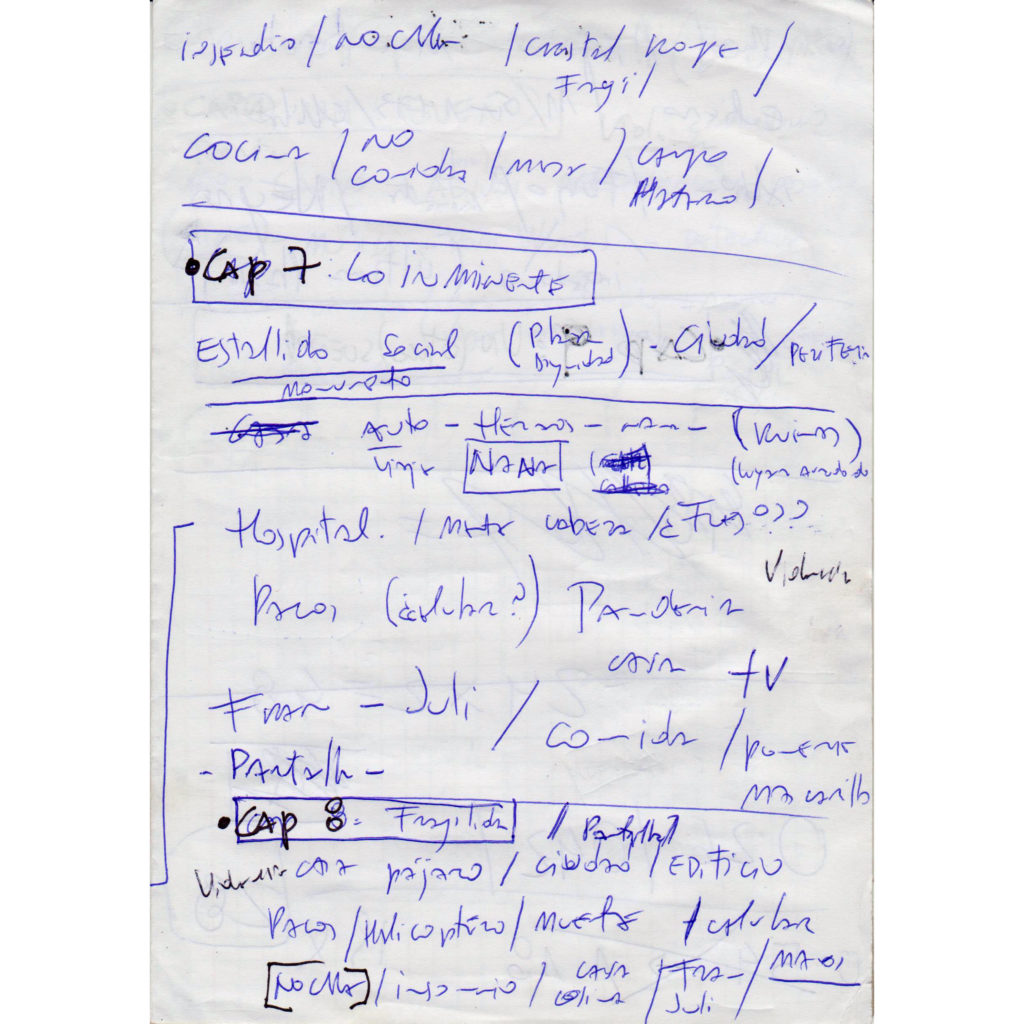 incendio / noche / cristal rompe /
Fragil
cocina / no comida / mesa / campo
Matarzo /
• Cap 7. Lo inminente
Estallido Social (Plaza Dignidad) - Ciudad / periferia
Monumento
Auto - Hermos - mar - (Ruinas)
viaje Nana
Hospital. / Muerte cabeza / ¿Fuego??
Pacos (celular?) Pandemia
casa TV
Fran - Juli / comida / ponerse
mascarilla
- Pantalla -
• Cap 8. Fragilidad // Pantalla
casa pájaro / ciudad / EDIFICIO
Pacos / Helicoptero / Muerte / celular
[Noche] / insomnio / casa colina / Fran Juli / manos